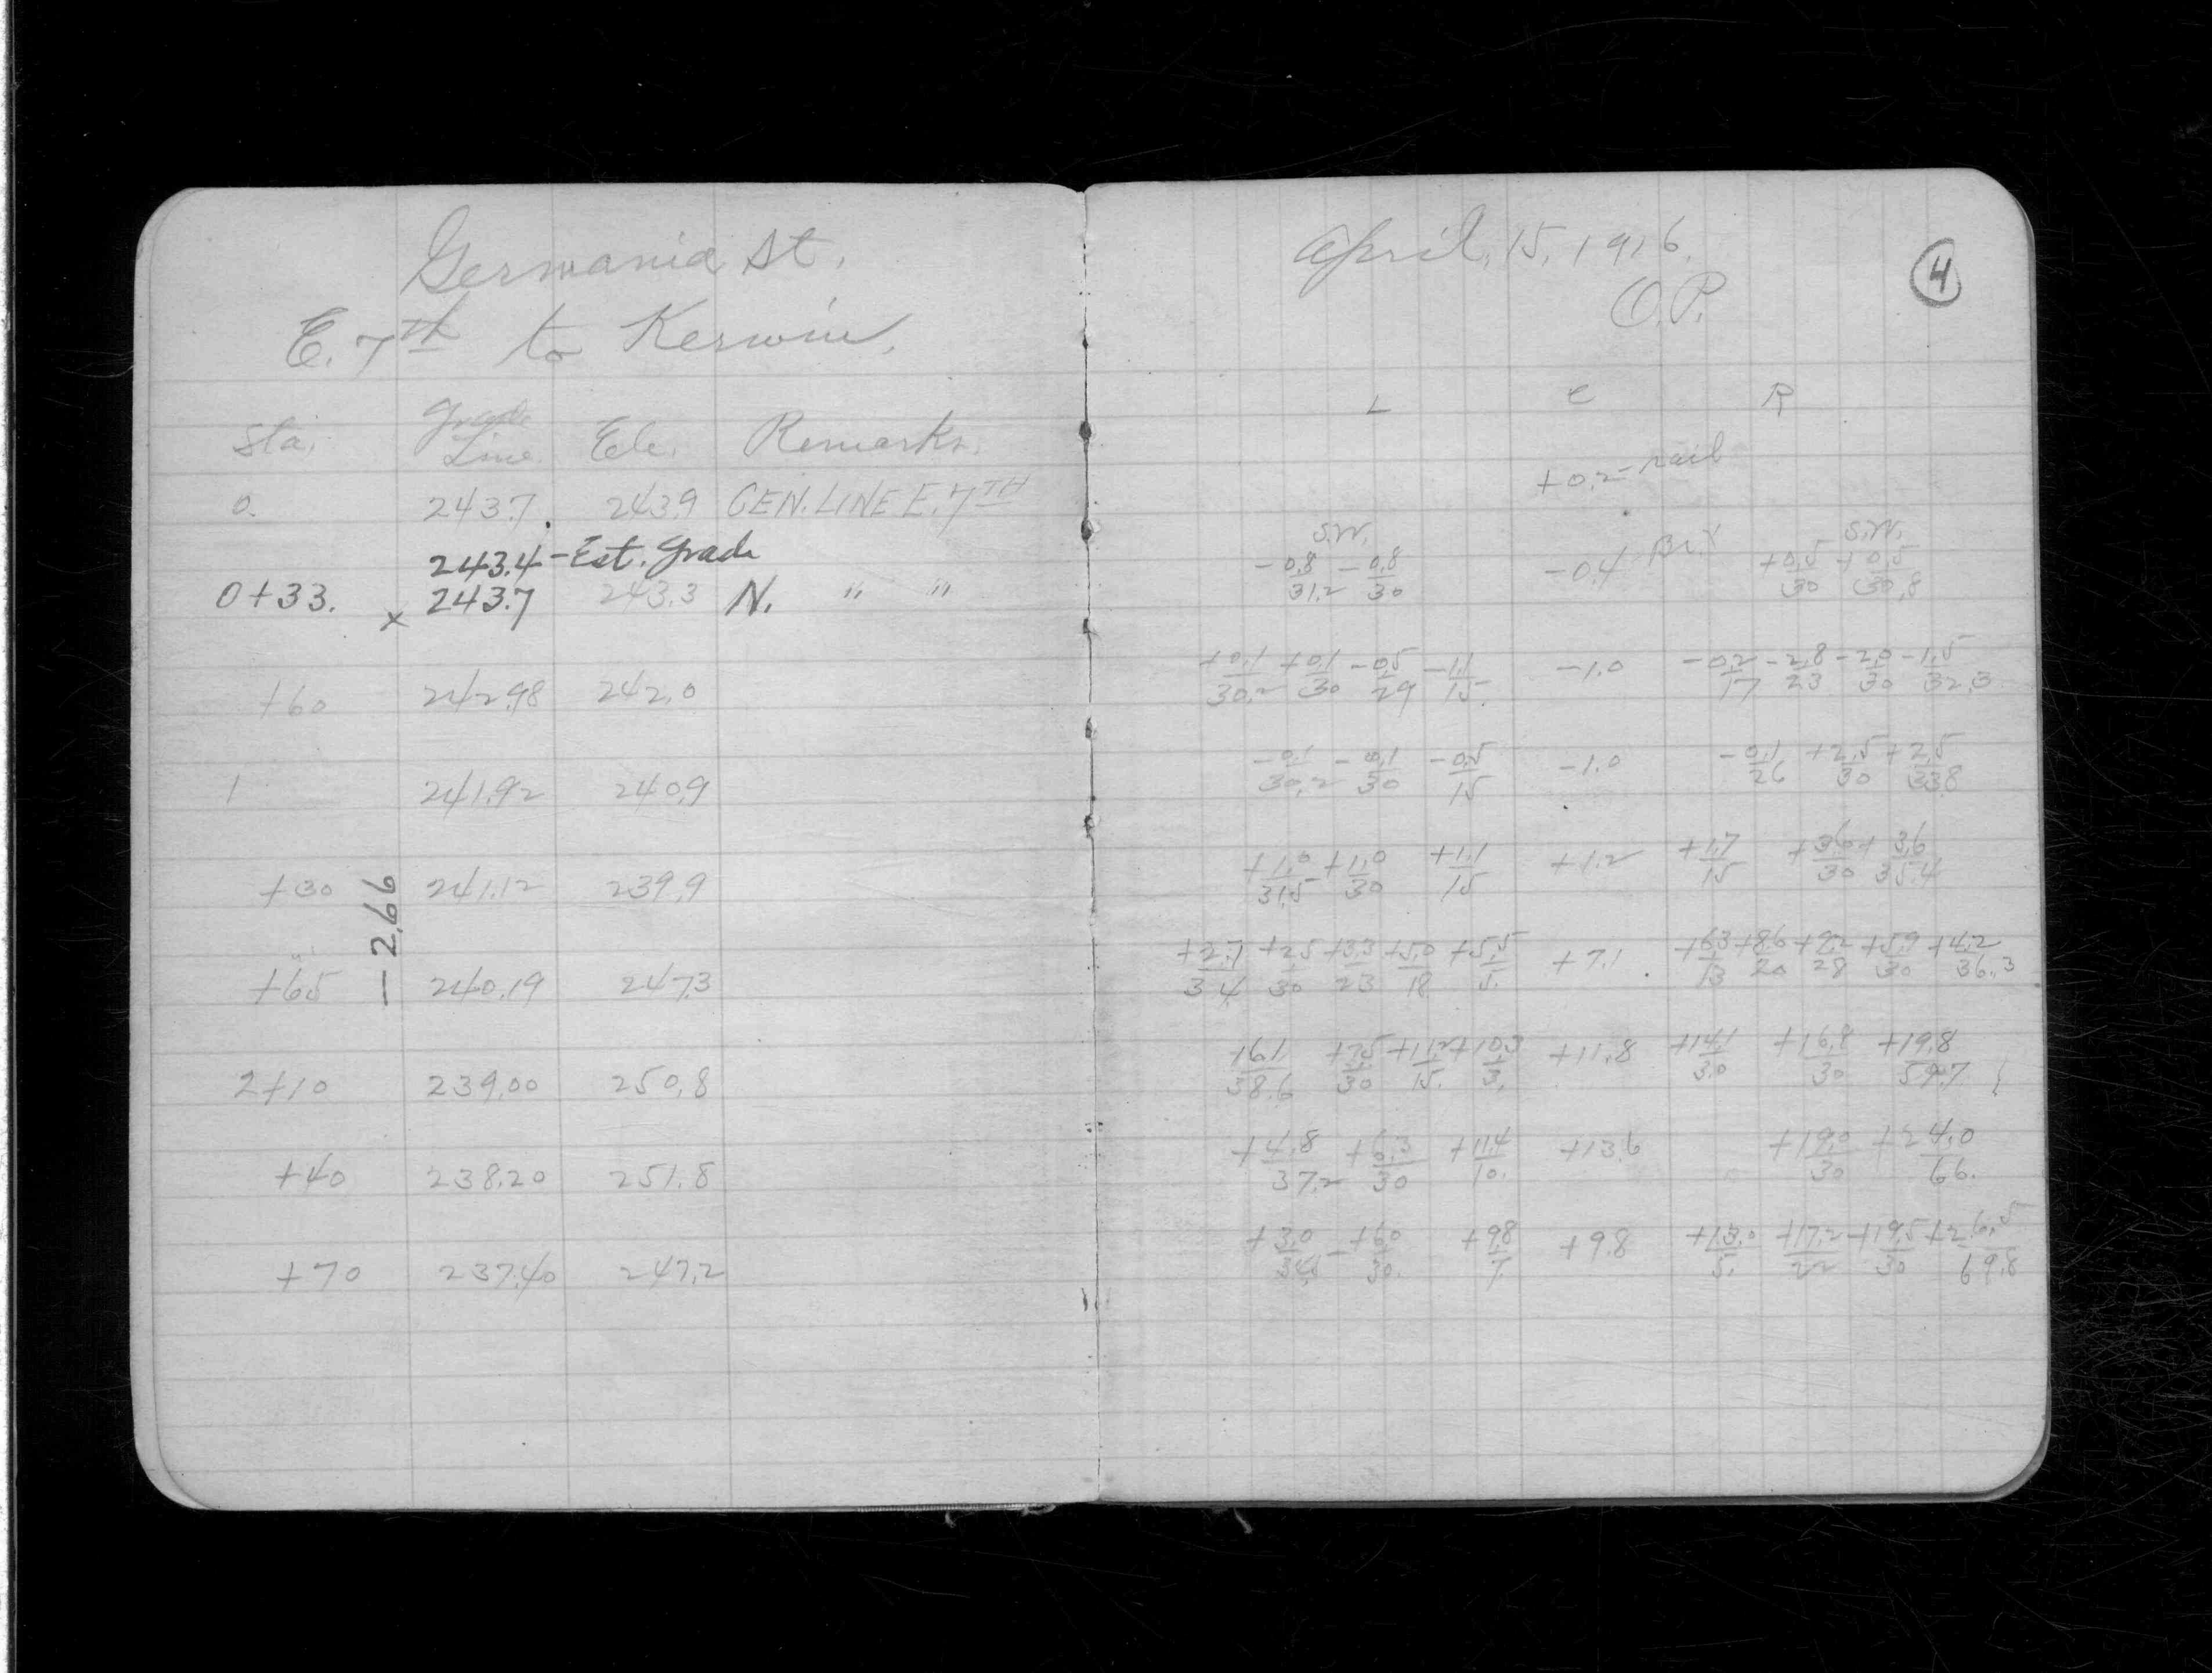 Germania St.
E. 7th to Kerwin.
Sta. Grade Line Ele. Remarks.
0. 243.7 243.9 CEN. LINE E. 7TH
243.4 - Est. Grade
0+33. x 243.7 243.3 N. " "
+60 242.98 242.0
1 241.92 240.9
+30 241.12 239.9
- 2.66
+65 240.19 247.3
2+10 239.00 250.8
+40 238.20 251.8
+70 237.40 247.2
April, 15, 1916.
O.P.
4
L C R
+0.2 - nail
S.W. S.W.
-0.8/31.2 -0.8/30 -0.4 +0.5/30 +0.5/30.8
+0.1/30.2 +0.1/30 -0.5/29 -1.1/15. -1.0 -0.2/17 -2.8/23 -2.0/30 -1.5/32.3
-0.1/30.2 -0.1/30 -0.5/15 -1.0 -0.1/26 +2.5/30 +2.5/33.8
+1.0/31.5 +1.0/30 +1.1/15 +1.2 +1.7/15 +3.6/30 +3.6/35.4
+2.7/34 +2.5/30 +3.3/23 +5.0/18 +5.5/5. +7.1 +6.3/13 +8.6/20 +9.2/28 +5.9/30 +4.2/36.3
+6.1/38.6 +7.5/30 +11.2/15. +10.3/3. +11.8 +14.1/3.0 +16.8/30 +19.8/59.7
+4.8/37.2 +6.3/30 +11.4/10. +13.6 +19.0/30 +24.0/66.
+3.0/34.5 +6.0/30. +9.8/7. +9.8 +13.0/5. +17.2/22 +19.5/30 +26.5/69.8